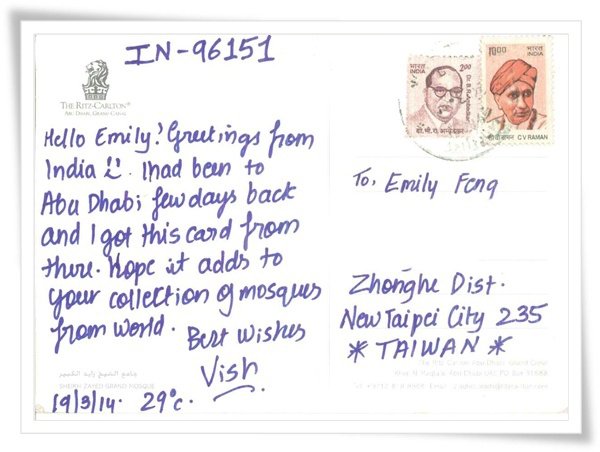 IN-96151
THE RITZ-CARLTON®
ABU DHABI, GRAND CANAL
Hello Emily! Greetings from
India. I had been to
Abu Dhabi few days back
and I got this card from
there. Hope it adds to
your collection of mosques
from world.
Best Wishes
Vish
جامع الشيخ زايد الكبير
SHEIKH ZAYED GRAND MOSQUE
19/3/14. 29°c.
भारत
INDIA
2.00
डॉ. बी. आर. अम्बेडकर
10.00
भारत
INDIA
सी वी रामन C V RAMAN
To, Emily Feng
Zhonghe Dist.
New Taipei City 235
* TAIWAN *